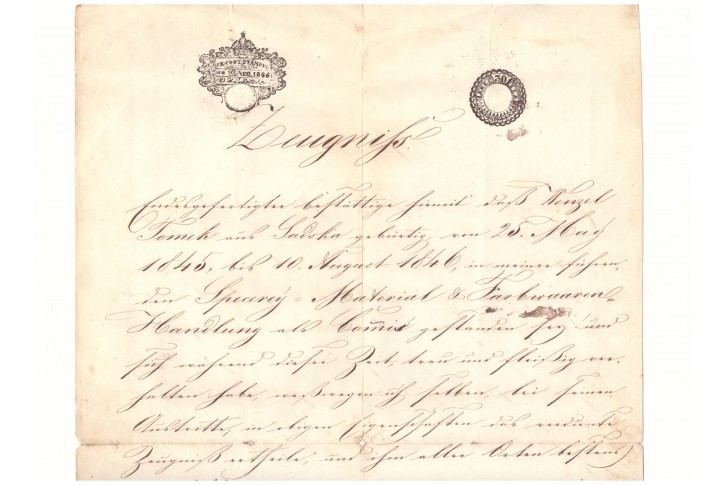 30
Zeugniß.
Endesgefertigter bestättige hiemit daß Wenzel
Tomek aus Sadska gebürtig, von 25. May
1845, bis 10. August 1846, in meiner führen,
den Specerey= Material & Farbwaaren=
Handlung als Com̅is gestanden sey und
sich während dieser Zeit, treu und fleißig ver,
halten habe, weßwegen ich selben, bei seinen
Austritte, in obigen Eigenschaften das verdiente
Zeugniß ertheile, und ihm aller Orten bestens